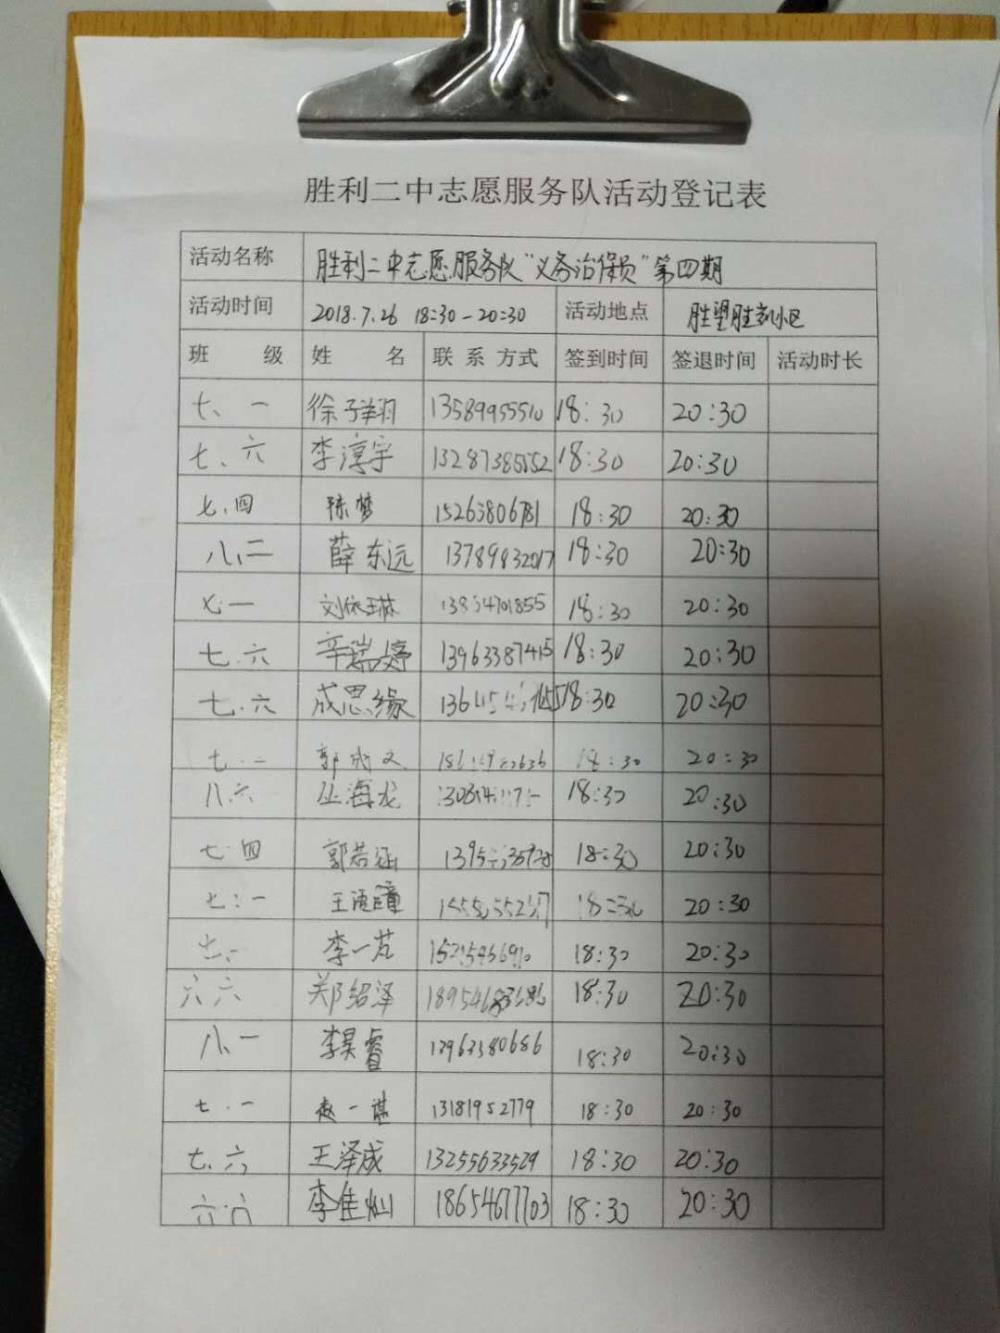 胜利二中志愿服务队活动登记表
活动名称 胜利二中志愿服务队"义务治保员"第四期
活动时间 2018.7.26 18:30-20:30 活动地点 胜望胜利小区
班 级 姓 名 联 系 方式 签到时间 签退时间 活动时长
七、一 徐子翔 13589955510 18:30 20:30
七、六 李淳宇 13287385552 18:30 20:30
七.四 陈梦 15263806781 18:30 20:30
八、二 薛东远 13789832017 18:30 20:30
七.一 刘依琳 18:30 20:30
七.六 辛瑞婷 13963387415 18:30 20:30
七.六 成思缘 18:30 20:30
七.二 郭 18:30 20:30
八.六 丛海龙 18:30 20:30
七.四 郭若涵 18:30 20:30
七.一 王 18:30 20:30
李一芃 18:30 20:30
六六 郑绍泽 18:30 20:30
八、一 李昊睿 13963380686 18:30 20:30
七.一 赵一谌 13181952779 18:30 20:30
七.六 王泽成 13255633529 18:30 20:30
六.六 李佳灿 18654677703 18:30 20:30